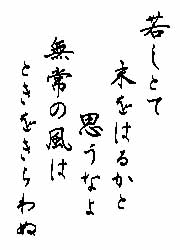 若しとて
末をはるかと
思うなよ
無常の風は
ときをきらわぬ